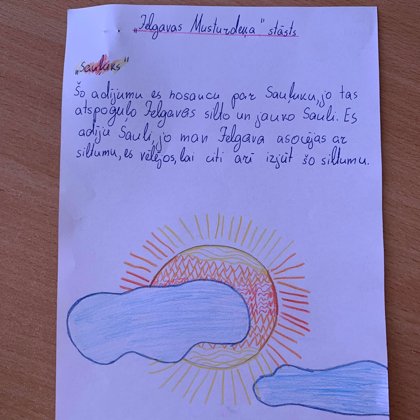 „Jelgavas Musturdeķa" stāsts
„Sauļuks"
Šo adījumu es nosaucu par Sauļuku, jo tas
atspoguļo Jelgavas silto un jauko Sauli. Es
adīju Sauli, jo man Jelgava asociējas ar
siltumu, es vēlējos, lai citi arī izjūt šo siltumu.